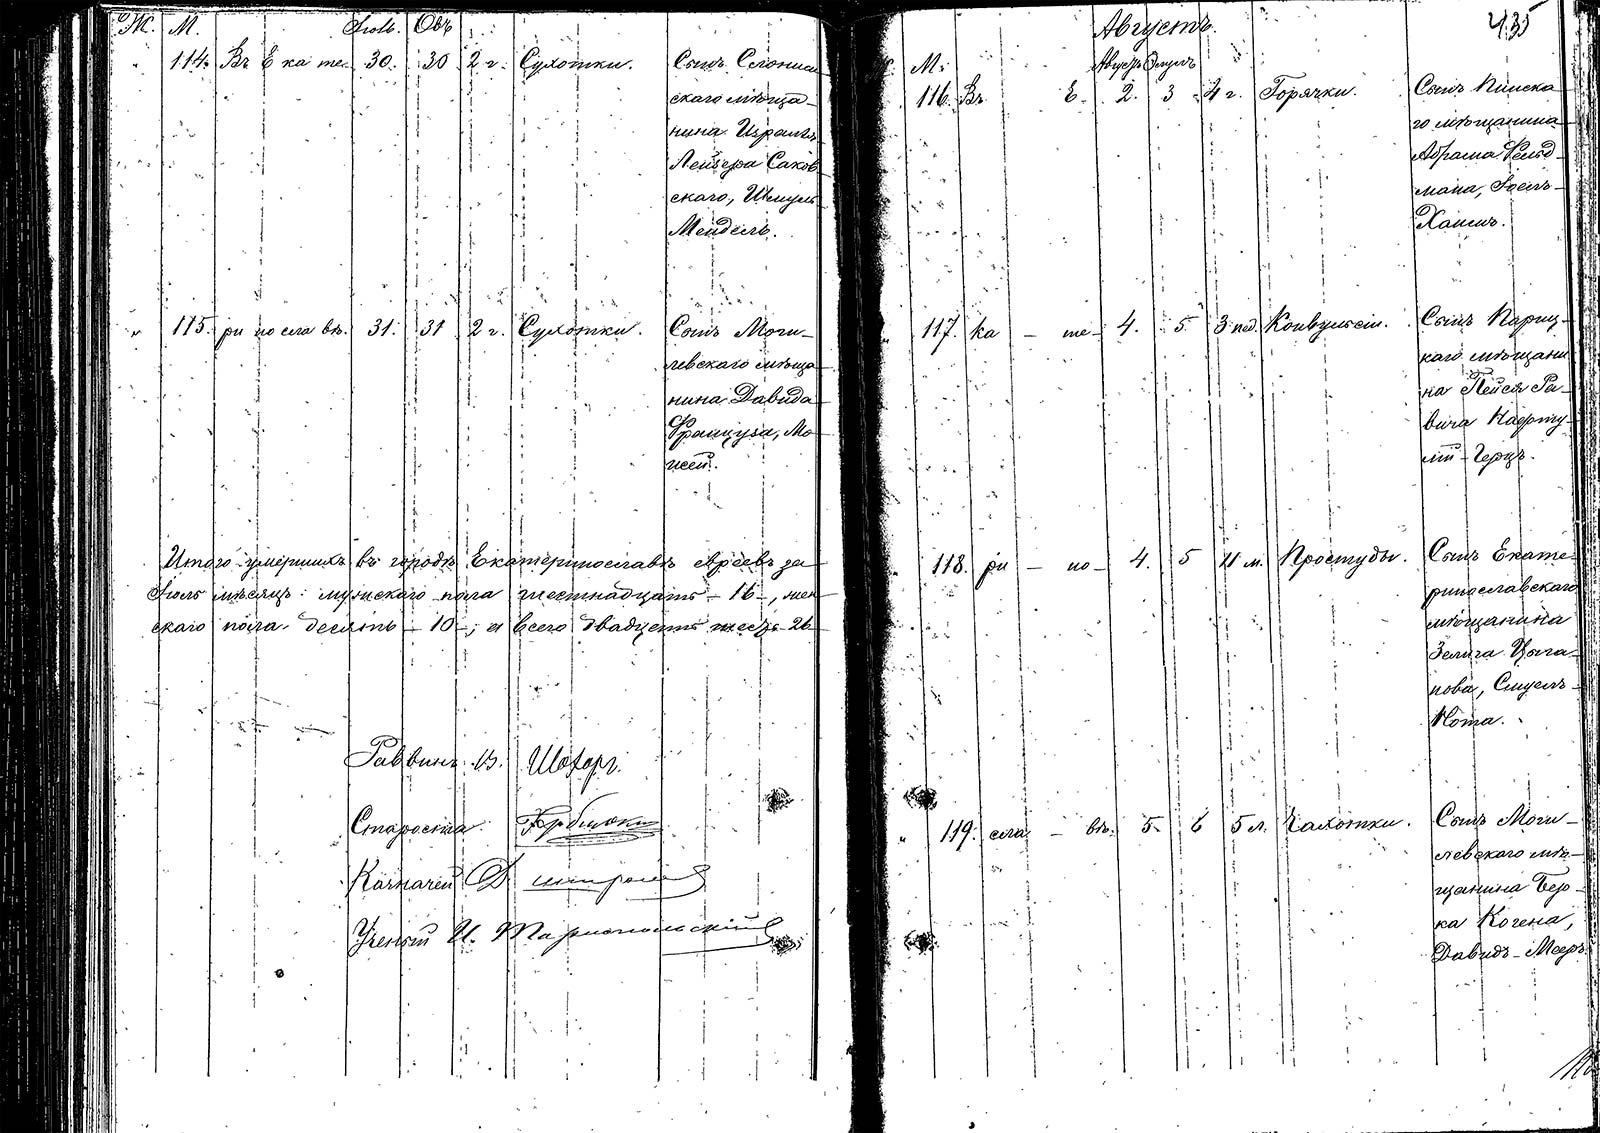 Ж. М. Іюль. Овъ
114. Въ Екате- 30. 30 2 г. Сухотки. Сынъ Слоним-
скаго мѣща-
нина Израиль
Лейзера Саков-
скаго, Шмуль
Мендель.
" 115. ринославѣ. 31. 31 2 г. Сухотки. Сынъ Моги-
левскаго мѣща-
нина Давида
Француза, Мо-
исей.
Итого умершихъ въ городѣ Екатеринославѣ евреевъ за
Іюль мѣсяцъ: мужскаго пола шестнадцать - 16 -, жен-
скаго пола десять - 10 -, а всего двадцать шесть 26
Раввинъ В. Шохоръ.
Староста
Казначей
Ученый И. Тариопольскій
435
Августъ.
М. Августъ
116. Въ Е- 2. 3 4 г. Горячки. Сынъ Пинска-
го мѣщанина
Абрама Фельд-
мана, Іоель-
Хаимъ.
" 117. ка - те- 4. 5 3 нед. Конвульсіи. Сынъ Париц-
каго мѣщани-
на Пейся Ра-
вича Нафту-
лій - Герцъ.
118. ри - но- 4. 5 11 м. Простуды. Сынъ Екате-
ринославскаго
мѣщанина
Зелига Цыга-
нова, Смуель-
Нота.
" 119. сла - вѣ. 5. 6 5 л. Чахотки. Сынъ Моги-
левскаго мѣ-
щанина Бер-
ка Когена,
Давидъ - Мееръ.